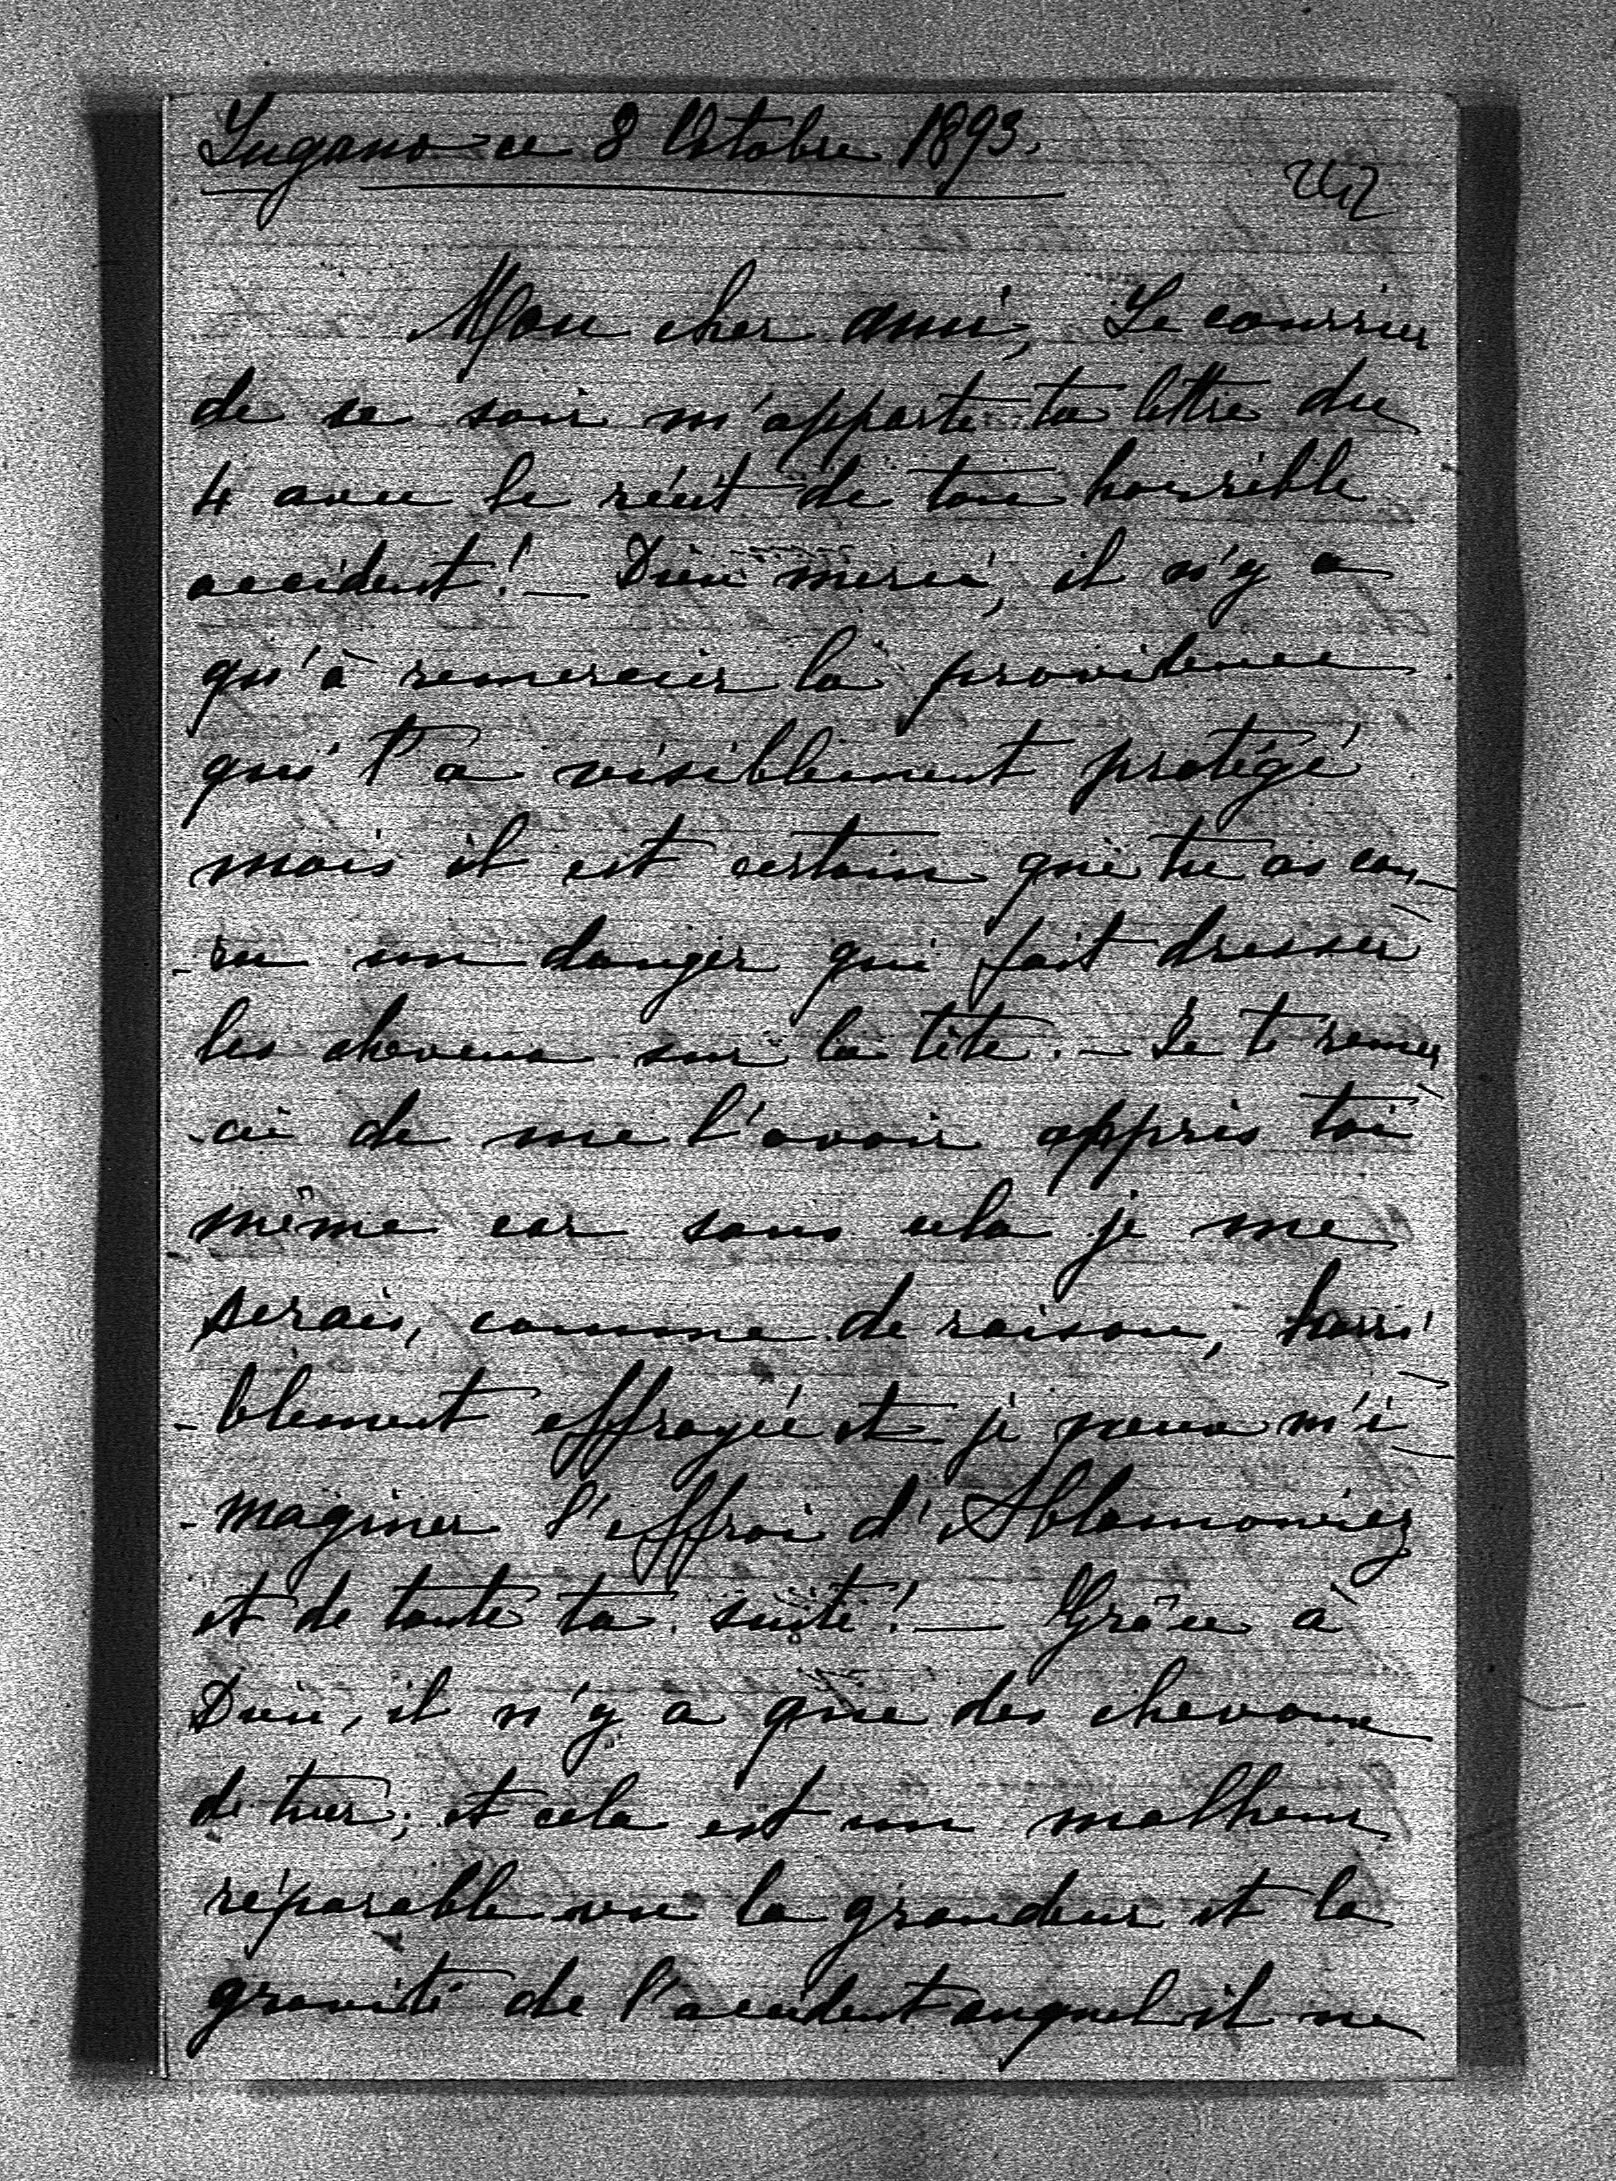 Lugano ce 8 Octobre 1893.
Mon cher ami, Le courrier
de ce soir m'apporte ta lettre du
4 avec le récit de ton horrible
accident! — Dieu merci, il n'y a
qu'à remercier la providence
qui t'a visiblement protégé
mais il est certain que tu as cou-
-ru un danger qui fait dresser
les cheveux sur la tête. — Je te remer-
-cie de me l'avoir appris toi
même car sans cela je me
serais, comme de raison, horri-
-blement effrayée et je peux m'i-
-maginer l'effroi d'Ablamowicz
et de toute ta suite! — Grâce à
Dieu, il n'y a que des chevaux
de tués; et cela est un malheur
réparable vu la grandeur et la
gravité de l'accident auquel il ne